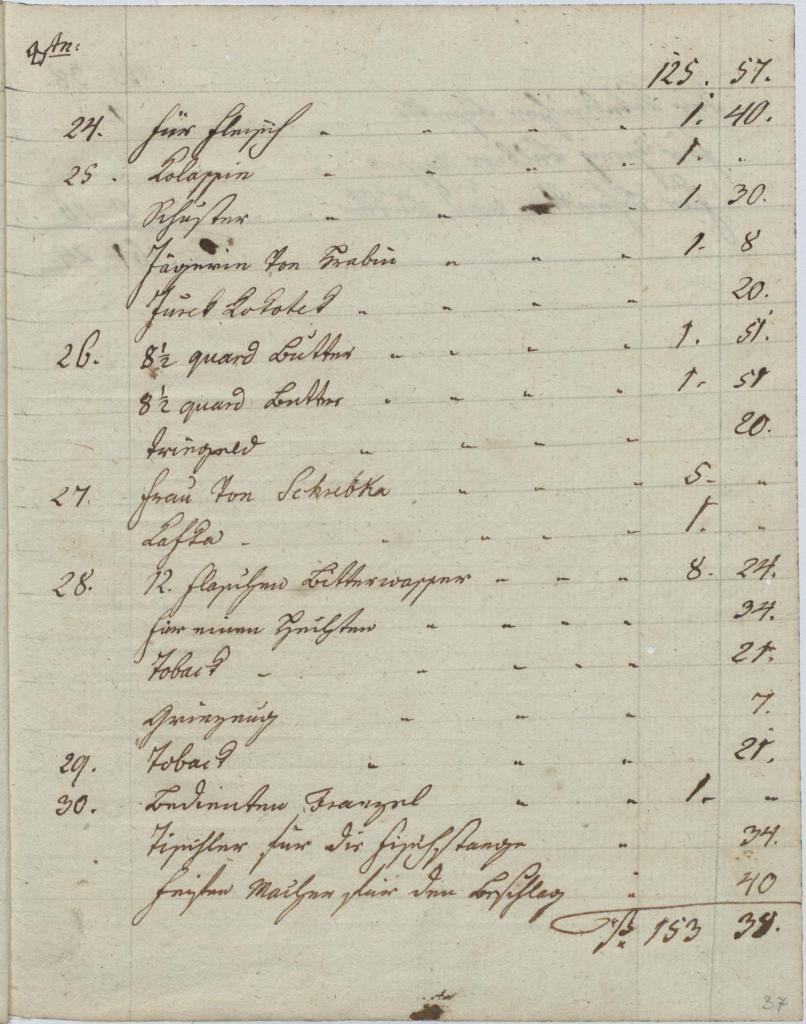 125. 57.
24. Für Fleisch „ „ „ „ 1. 40.
25. Kolassin „ „ „ „ 1. „
Schuster „ „ „ 1. 30.
Jägerin von Grabin „ „ „ 1. 8
Jurek „ „ „ „ 20.
26. 8½ quard Butter „ „ „ „ 1. 51.
8½ quard Butter „ „ „ „ 1. 51
Tringeld „ „ „ „ 20.
27. Frau von Schrebka „ „ „ „ 5. „
„ „ „ „ 1. „
28. 12. Flaschen Bitterwasser „ „ „ 8. 24.
für einen „ „ „ „ 34.
Toback „ „ „ „ „ 21.
Grinzeug „ „ „ 7.
29. Toback „ „ „ 21.
30. Bedienten Franzel „ „ 1. „
Tischler für die Fischstange „ 34.
für den Beschlag „ 40
153 39.
37